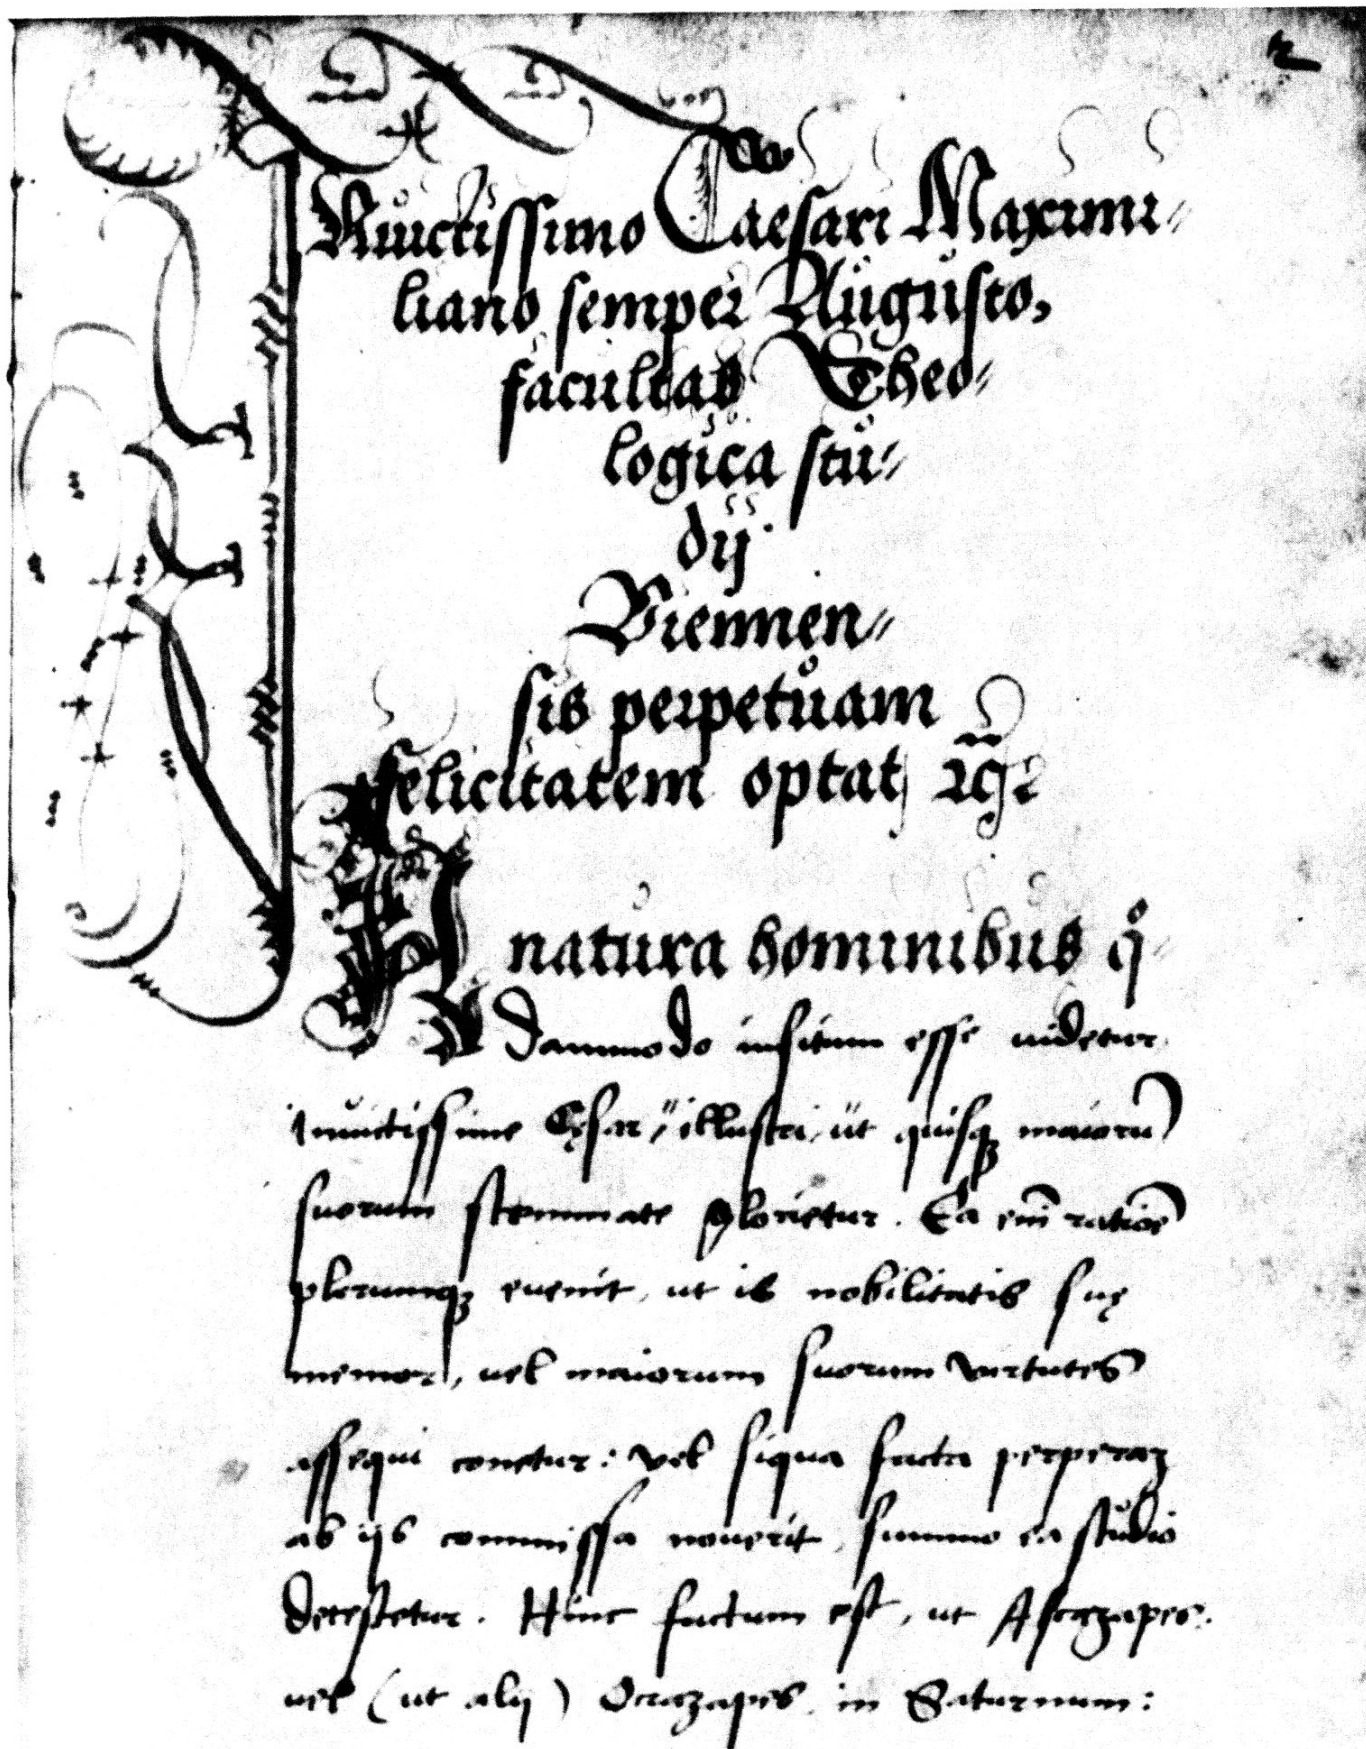 2
INuictissimo Caesari Maximi-
liano semper Augusto,
facultas Theo-
logica stu-
dij
Viennen-
sis perpetuam
felicitatem optat
IN natura hominibus q̊-
dammodo insitum esse uidetur
inuictissime Cęsar, illustri, ut quisq̃ maiorũ
suorum stemmate glorietur. Ea em̃ ratioẽ
plerumq̃ euenit, ut is nobilitatis suę
memor, uel maiorum suorum virtutes
assequi conetur: vel siqua facta perperaꝫ
ab ijs commissa nouerit, summo ea studio
detestetur. Hinc factum est, ut
uel (ut alij) Ocrazapes in Saturnum: